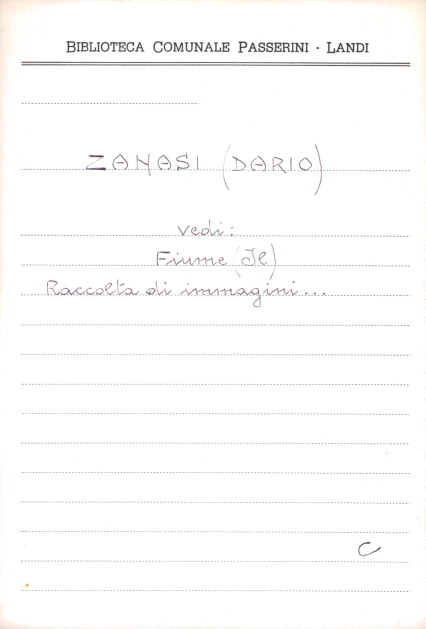 BIBLIOTECA COMUNALE PASSERINI - LANDI
ZANASI (DARIO)
vedi:
Fiume (Il)
Raccolta di immagini...
C